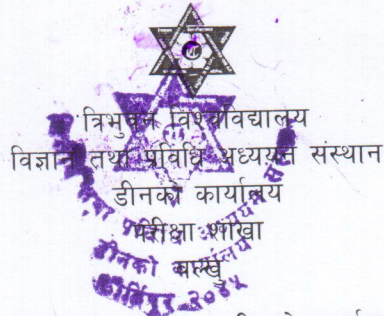 त्रिभुवन विश्वविद्यालय
विज्ञान तथा प्रविधि अध्ययन संस्थान
डीनको कार्यालय
परीक्षा शाखा
बल्खु
डीनको कार्यालय
कीर्तिपुर २०४५